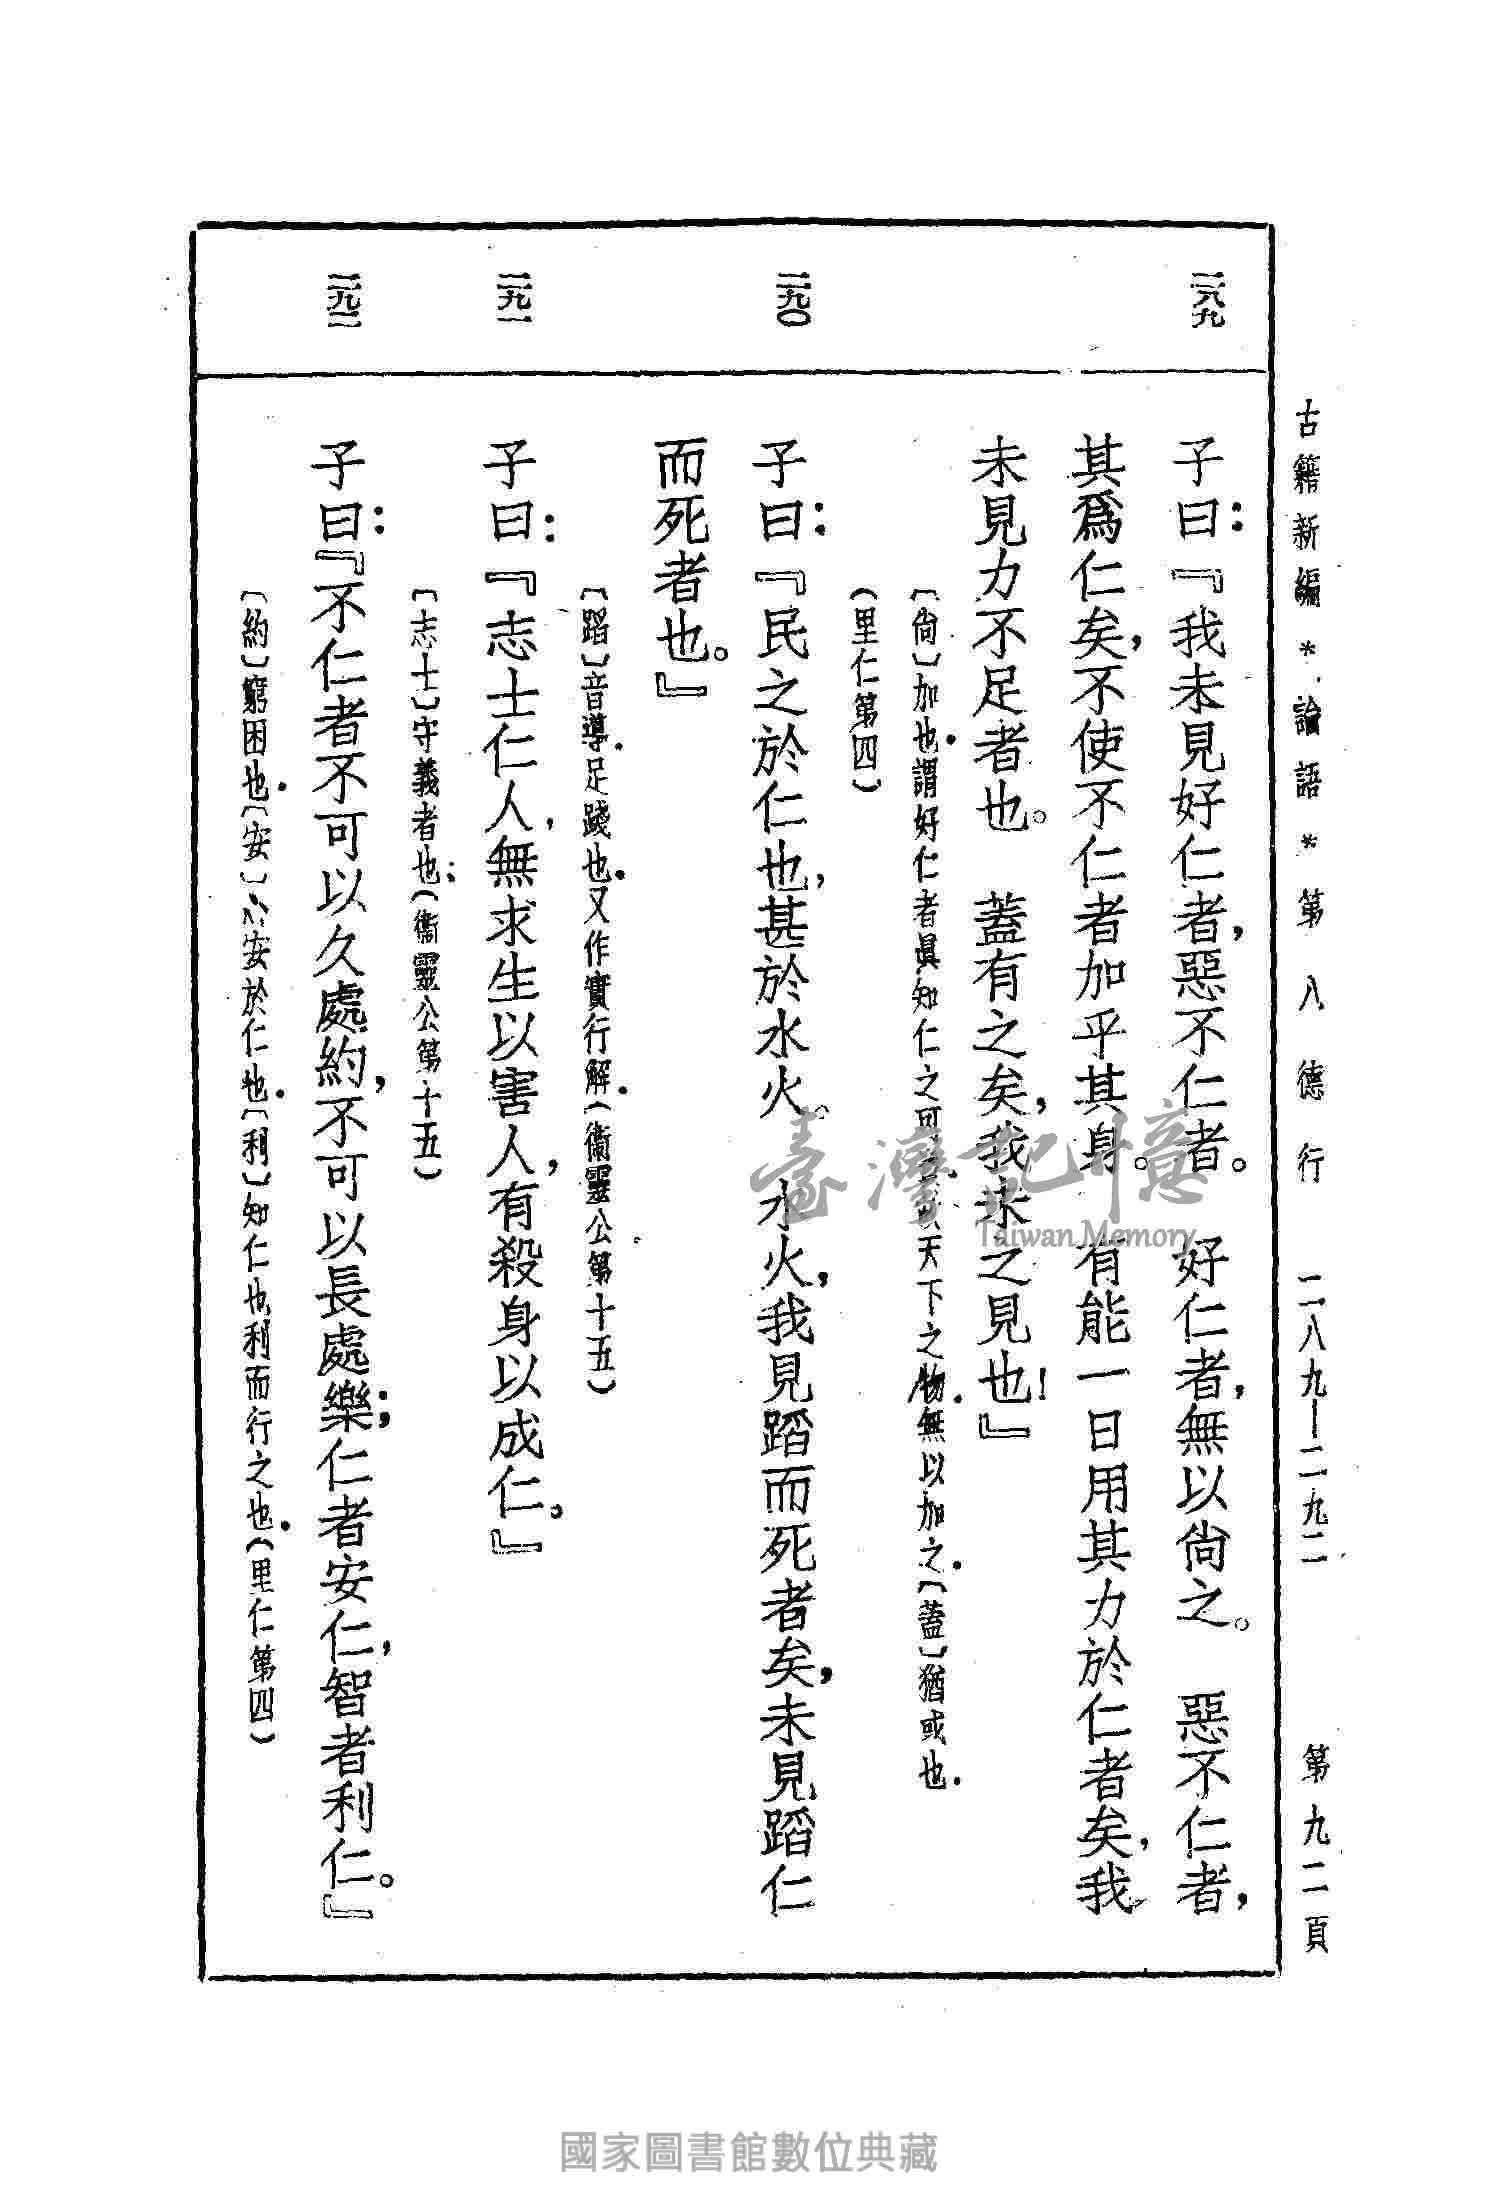 古籍新編*論語*第八德行 二八九—二九二 第九二頁
二八九
子曰：『我未見好仁者，惡不仁者。好仁者，無以尙之。惡不仁者，
其爲仁矣，不使不仁者加乎其身。有能一日用其力於仁者矣，我
未見力不足者也。蓋有之矣，我未之見也！』
〔尙〕加也．謂好仁者眞知仁之可 天下之物．無以加之．〔蓋〕猶或也．
（里仁第四）
二九〇
子曰：『民之於仁也，甚於水火。水火，我見蹈而死者矣，未見蹈仁
而死者也。』
〔蹈〕音導．足踐也．又作實行解．（衞靈公第十五）
二九一
子曰：『志士仁人，無求生以害人，有殺身以成仁。』
〔志士〕守義者也．（衞靈公第十五）
二九二
子曰：『不仁者不可以久處約，不可以長處樂；仁者安仁，智者利仁。』
〔約〕窮困也．〔安〕心安於仁也．〔利〕知仁也利而行之也．（里仁第四）
臺灣記憶
Taiwan Memory
國家圖書館數位典藏